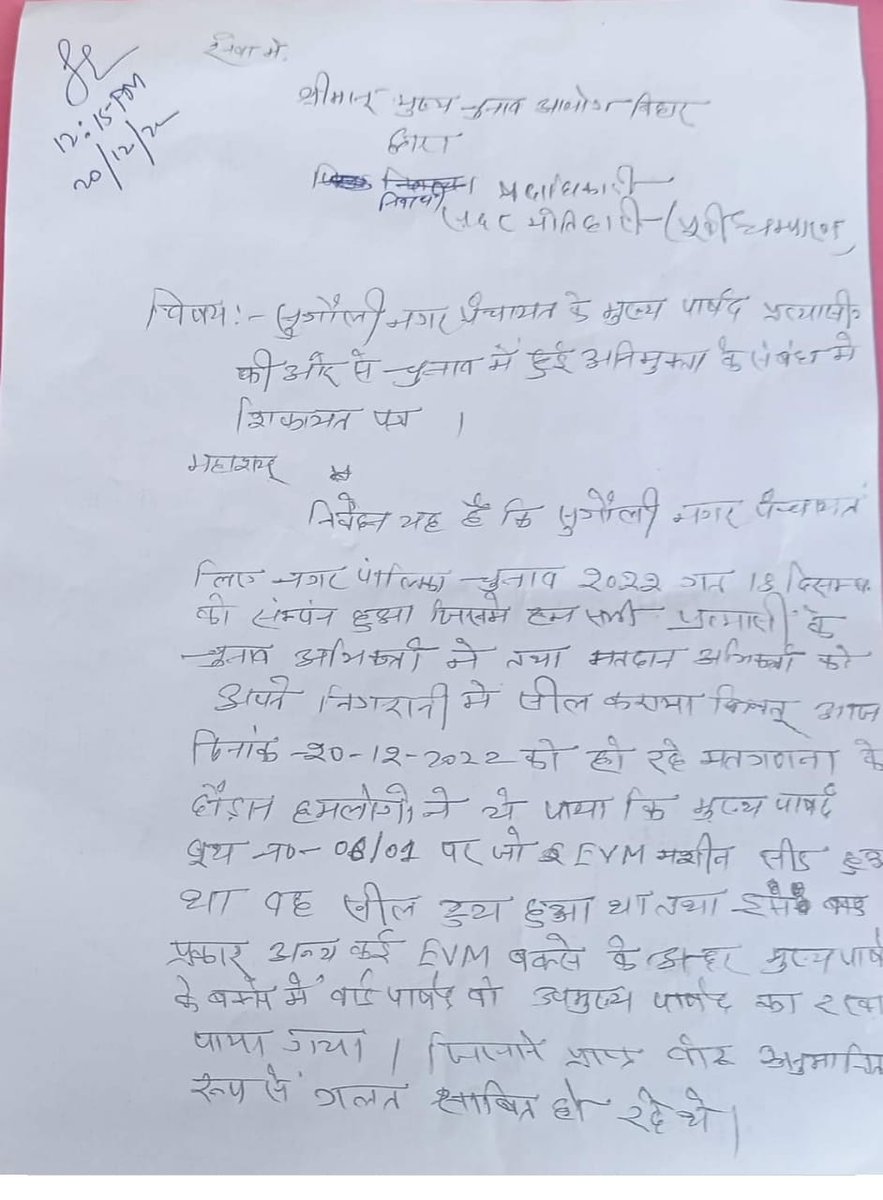 12:15 PM
20/12/22
सेवा में,
श्रीमान् मुख्य चुनाव आयोग बिहार
द्वारा
निर्वाची पदाधिकारी
सदर मोतिहारी (पूर्वी चम्पारण)
विषय :- सुगौली नगर पंचायत के मुख्य पार्षद प्रत्याशी
की ओर से चुनाव में हुई के संबंध में
शिकायत पत्र ।
महाशय
निवेदन यह है कि सुगौली नगर पंचायत
लिए नगर पालिका चुनाव 2022 गत 18 दिसम्ब
को संपंन हुआ जिसमे हम सभी प्रत्याशी के
चुनाव अभिकर्ता ने तथा मतदान अभिकर्ता को
अपने निगरानी में सील कराया किन्तू आज
दिनांक -20-12-2022 को हो रहे मतगणना के
दौड़ान हमलोगो ने ये पाया कि मुख्य पार्षद
बुथ न0- 06/01 पर जो EVM मशीन सील हुआ
था वह सील टुटा हुआ था तथा
प्रकार अन्य कई EVM बक्से के अन्दर मुख्य पार्ष
के बक्से में वार्ड पार्षद वो उपमुख्य पार्षद का रखा
पाया गया । जिसमे प्राप्त वोट अनुमानित
रूप से गलत साबित हो रहे थे।